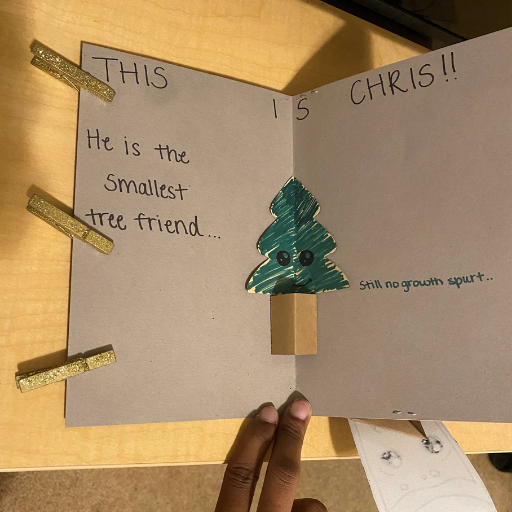 THIS IS CHRIS!!
He is the
smallest
tree friend...
Still no growth spurt..